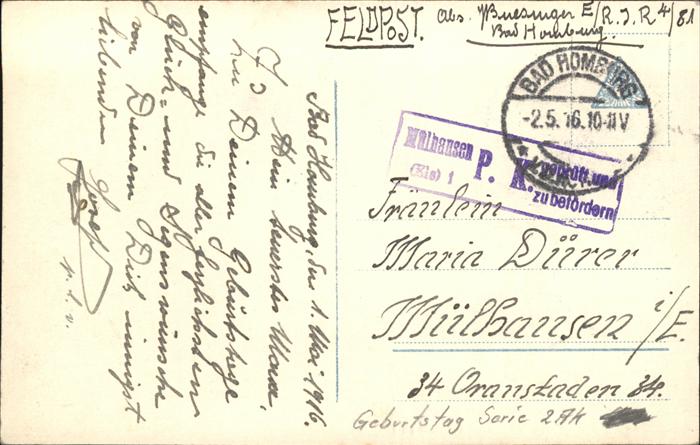 FELDPOST. Abs. Buesinger E/R.I.R 4/81
Bad Homburg.
BAD HOMBURG
-2.5.16.10-11V
Mülhausen
(Els) 1
P. K.
geprüft und
zu befördern
Fräulein
Maria Dürer
Mülhausen i/E.
34 Oranstaden 34.
Geburtstag Serie 2Ak
Bad Homburg, den 1. Mai 1916.
Mein teuerstes
Zu Deinem Geburtstage
empfange die allerherzlichsten
Glück- und Segenswünsche
von Deinem Dich innigst
liebenden Josef